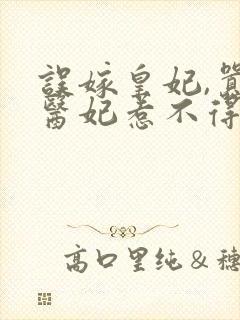 誤嫁皇妃,
醫妃惹不得
高口里纯&穗